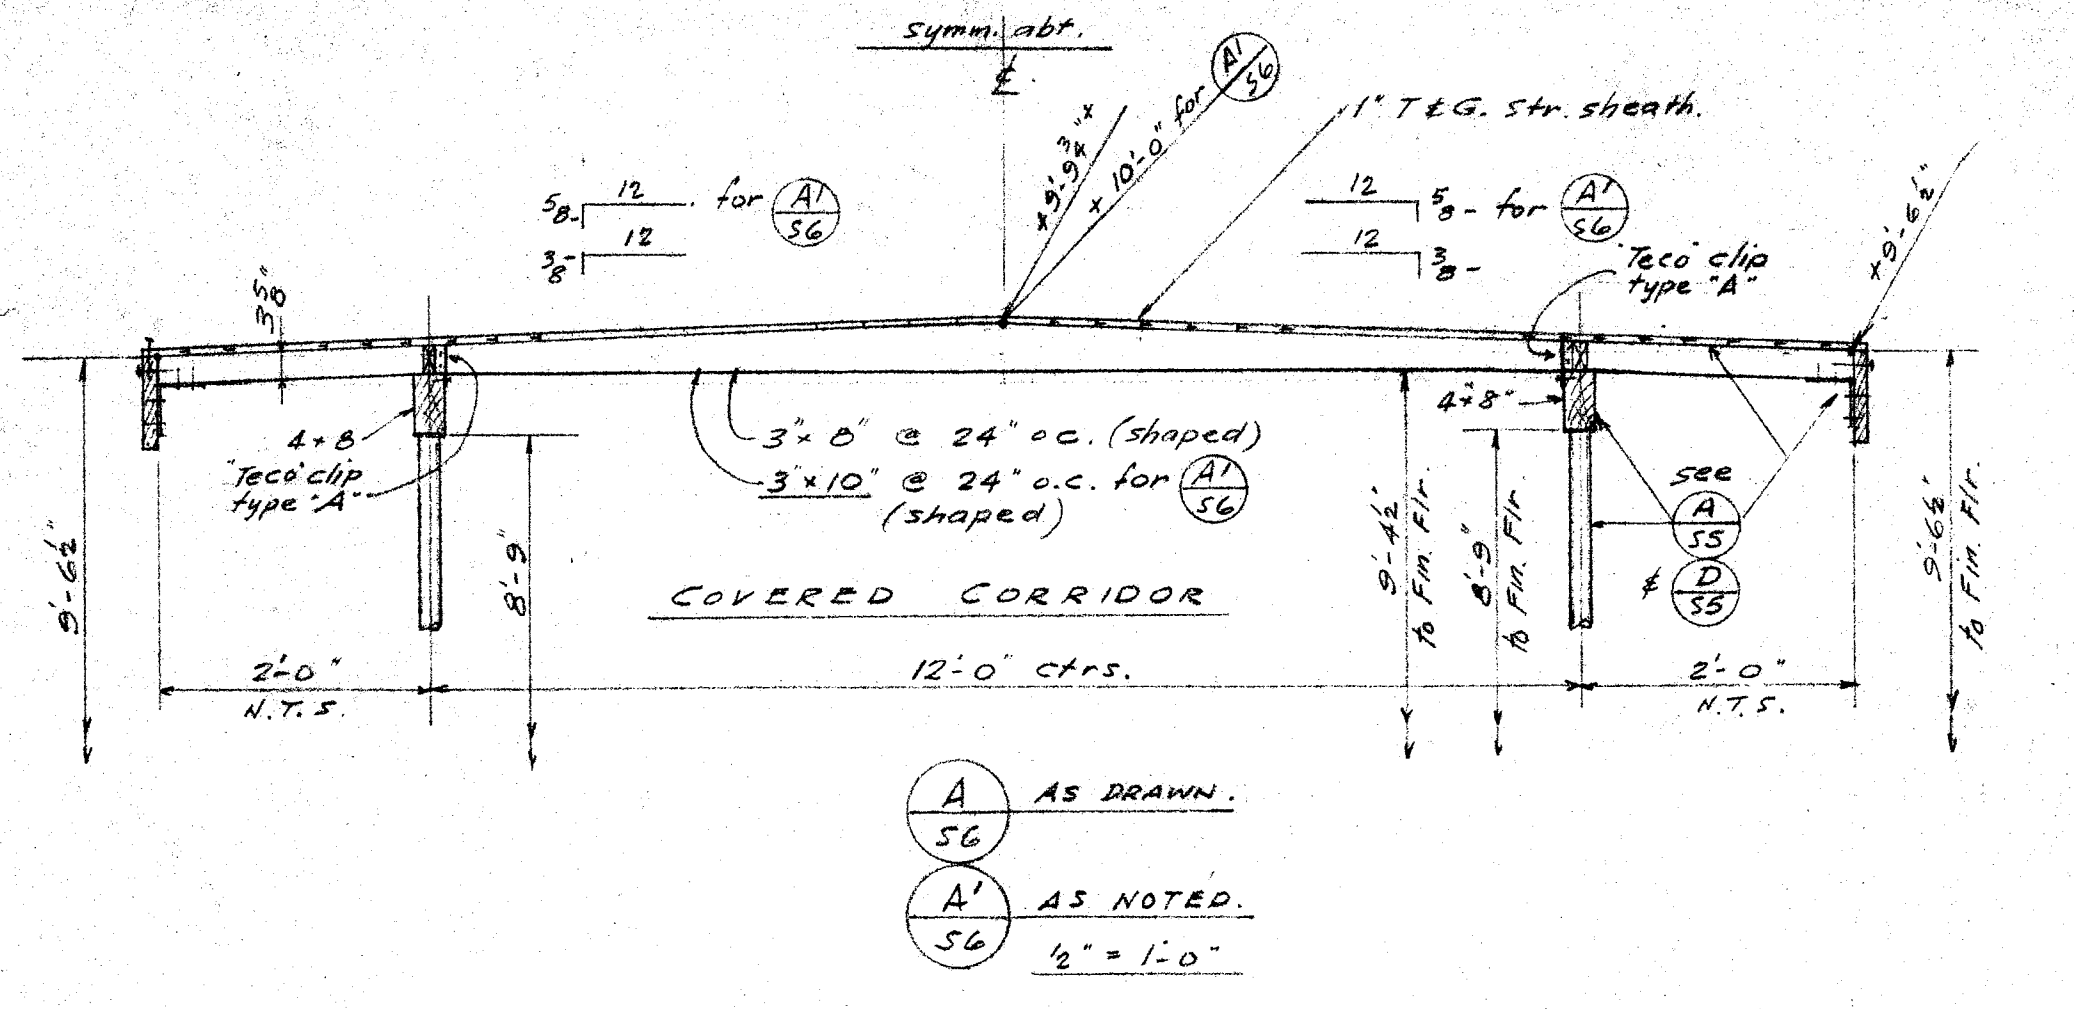 symm. abt.
℄.
A'
S6
x 9'-9 3/4" x
x 10'-0" for
1" T & G. Str. sheath.
5/8 - 12 . for
A'
S6
3/8 - 12
12 5/8 - for
A'
S6
12 3/8 -
"Teco" clip
type "A"
x 9'-6 1/2"
3 5/8"
4 x 8
"Teco" clip
type "A"
4 x 8"
3" x 8" @ 24" o.c. (shaped)
3" x 10" @ 24" o.c. for
A'
S6
(shaped)
see
A
S5
&
D
S5
9'-6 1/2"
8'-9"
COVERED CORRIDOR
9'-4 1/2"
to Fin. Flr.
8'-9"
to Fin. Flr.
9'-6 1/2"
to Fin. Flr.
2'-0"
N.T.S.
12'-0" ctrs.
2'-0"
N.T.S.
A
S6
AS DRAWN.
A'
S6
AS NOTED.
1/2" = 1'-0"